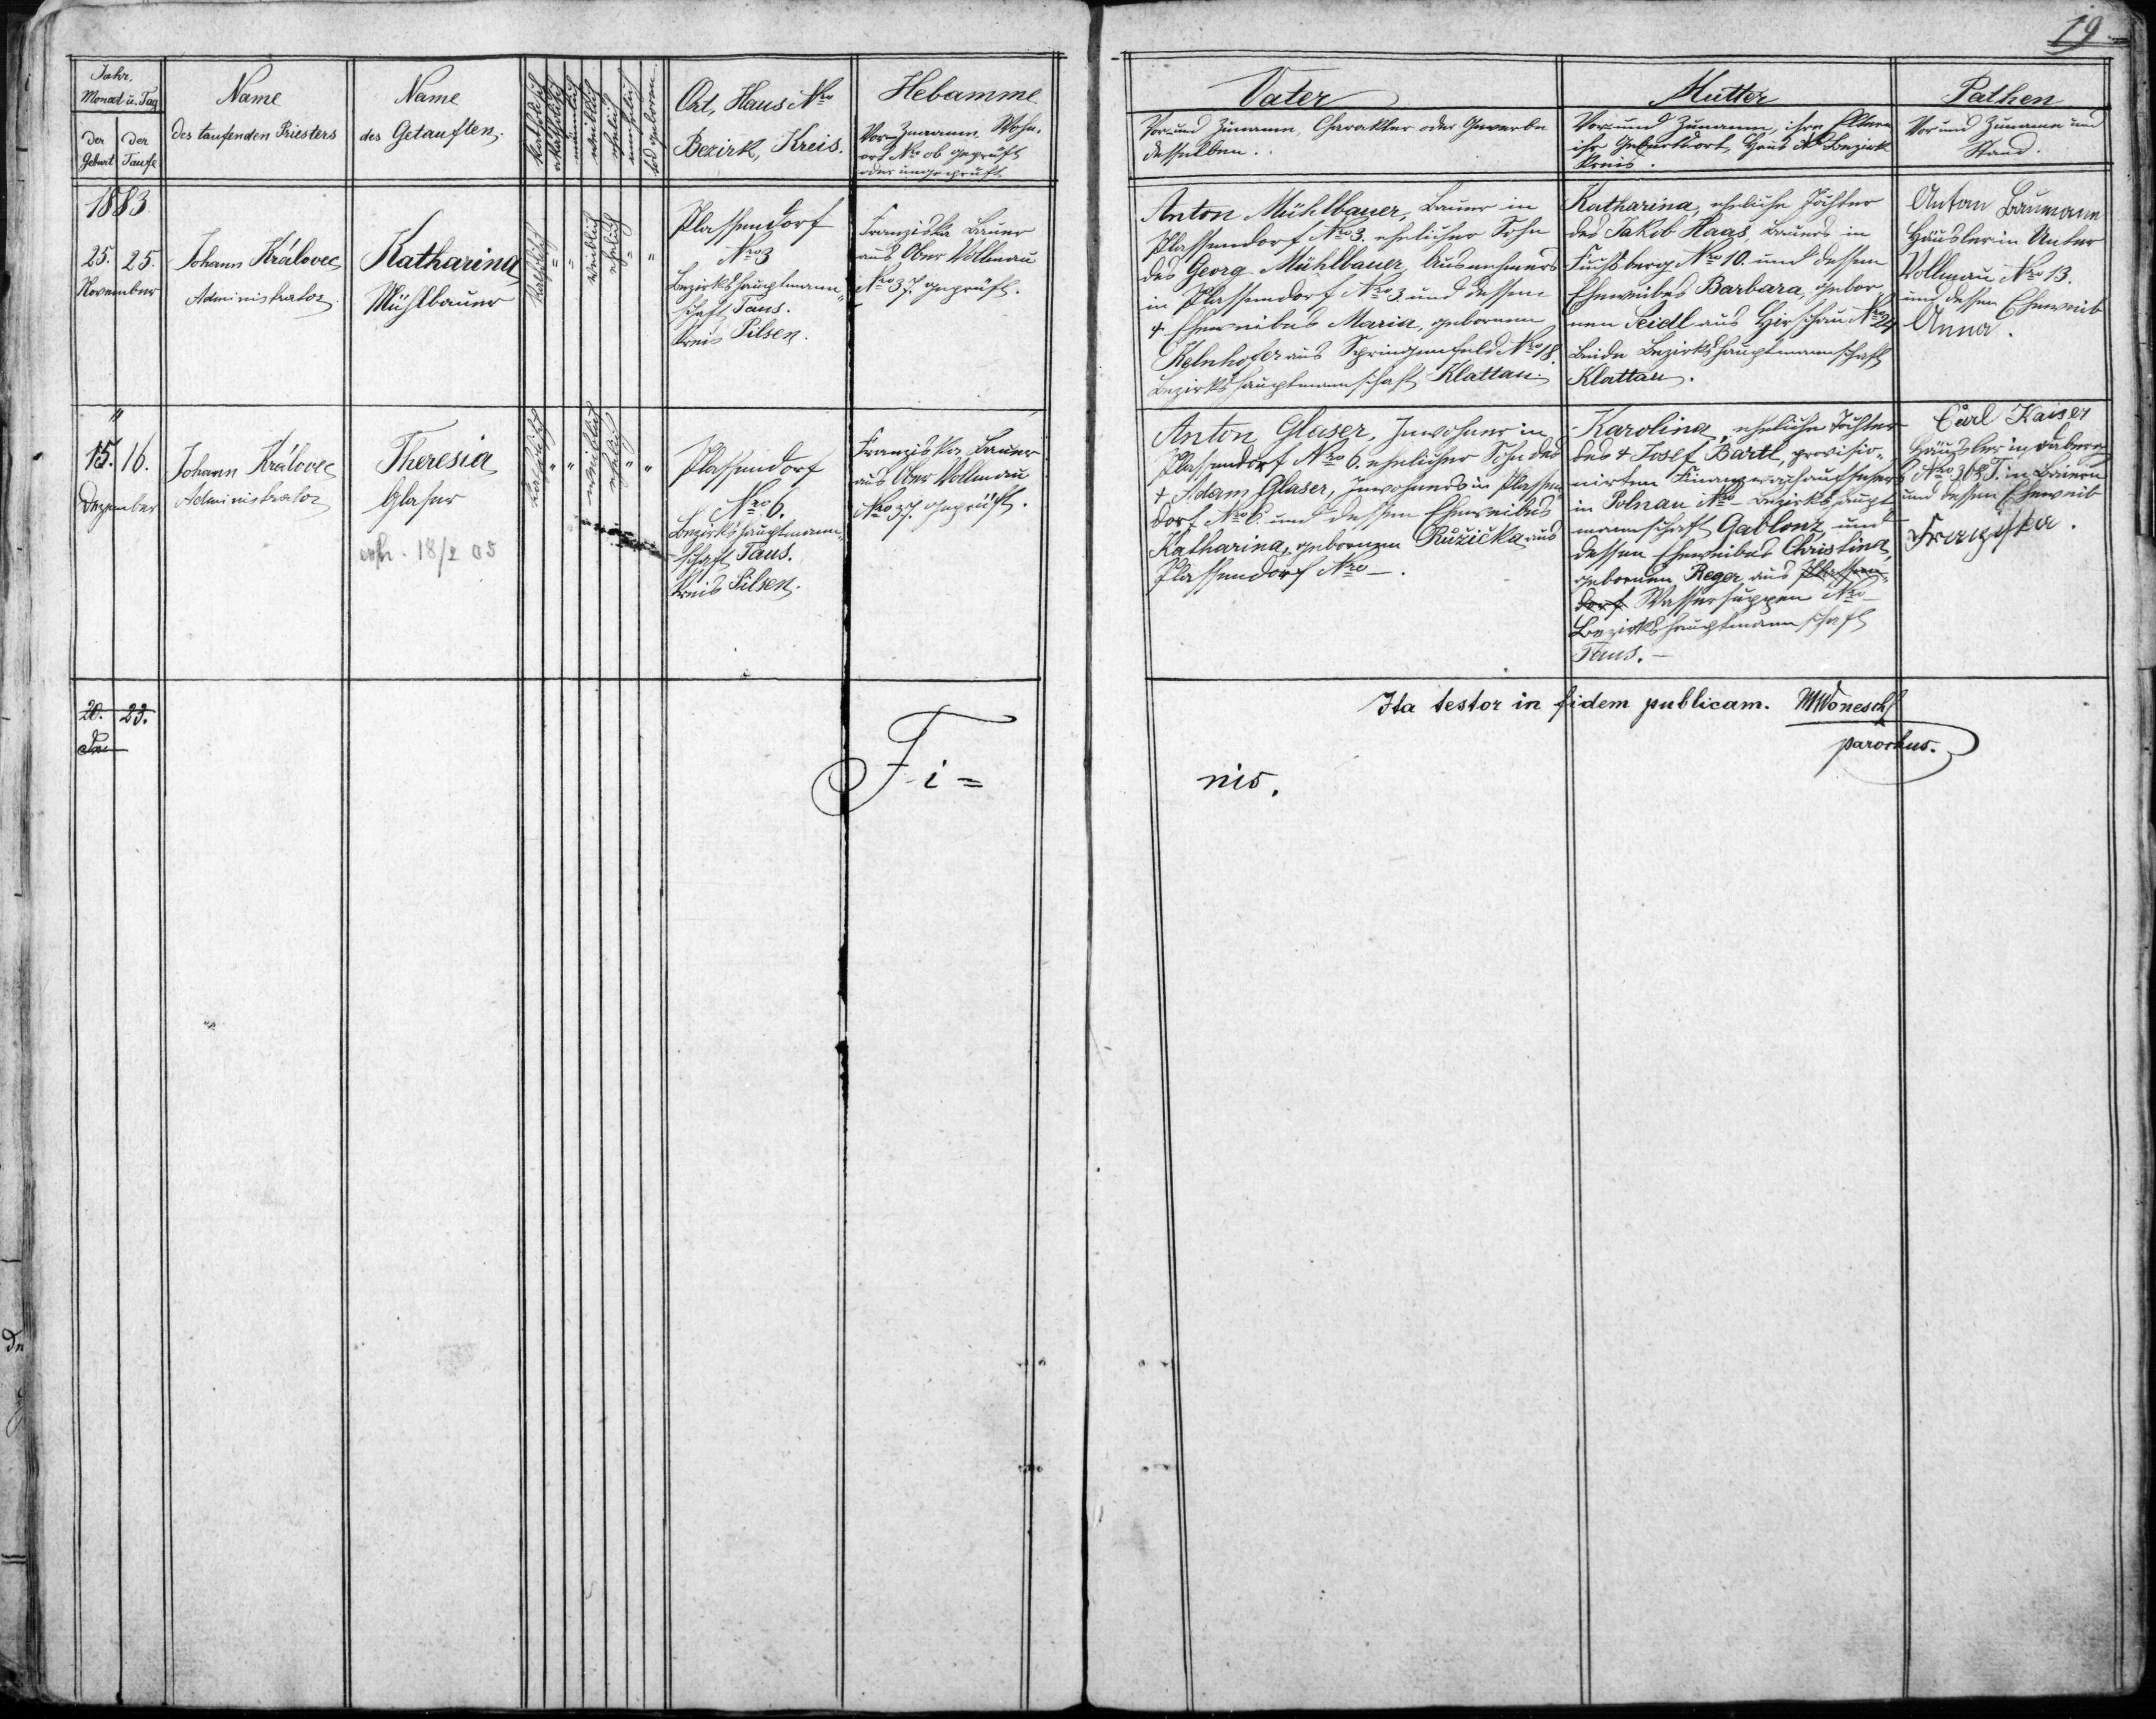 19
Jahr,
Monat u. Tag
der Geburt
der Taufe
Name
des taufenden Priesters
Name
des Getauften.
katholisch
akatholisch
männlich
weiblich
ehelich
unehelich
tod geboren
Ort, Haus Nro
Bezirk, Kreis.
Hebamme
Vor- Zuname, Wohn-
ort Nro ob geprüft
oder ungeprüft.
Vater
Vor- und Zuname, Charakter oder Gewerbe
desselben.
Mutter
Vor- und Zuname, ihre Eltern
ihr Geburtsort, Haus Nro Bezirk
Kreis.
Pathen
Vor und Zuname und
Stand.
1883
25.
25.
November
Johann Královec
Administrator
Katharina
Mühlbauer
katholisch
"
"
weiblich
ehelich
"
"
Plassendorf
Nro 3
Bezirkshauptmann-
schaft Taus.
Kreis Pilsen.
Franziska Bauer
aus Ober Vollmau
Nro 37. geprüft.
Anton Mühlbauer, Bauer in
Plassendorf Nro 3. ehelicher Sohn
des Georg Mühlbauer, Ausnehmers
in Plassendorf Nro 3 und dessen
+ Eheweibes Maria, gebornen
Kelnhofer aus Springenfeld Nro 18.
Bezirkshauptmannschaft Klattau.
Katharina, eheliche Tochter
des Jakob Haas, Bauers in
Fuchsberg Nro 10. und dessen
Eheweibes Barbara, gebor-
nen Seidl aus Hirschau Nro 24
beide Bezirkshauptmannschaft
Klattau.
Anton Baumann
Häusler in Unter
Vollmau Nro 13.
und dessen Eheweib
Anna.
"
15.
16.
Dezember
Johann Královec
Administrator
Theresia
Glaser
18/I 05
katholisch
"
"
weiblich
ehelich
"
"
Plassendorf
Nro 6.
Bezirkshauptmann-
schaft Taus.
Kreis Pilsen.
Franziska Bauer
aus Ober Vollmau
Nro 37. geprüft.
Anton Glaser, Inwohner in
Plassendorf Nro 6. ehelicher Sohn des
+ Adam Glaser, Inwohners in Plassen-
dorf Nro 6. und dessen Eheweibes
Katharina, gebornen Růžička aus
Plassendorf Nro –.
Karolina, eheliche Tochter
des + Josef Bartl, provisio-
nirten Finanzwachaufsehers
in Polnau Nro – Bezirkshaupt
mannschaft Gablonz und
dessen Eheweibes Christina,
gebornen Reger, aus Plassen-
dorf Wassersuppen Nro –
Bezirkshauptmannschaft
Taus. –
Carl Kaiser
Häusler in
in Baiern
und dessen Eheweib
Franziska.
20.
23.
Ita testor in fidem publicam. MWonesch
parochus.
Fi=
nis.